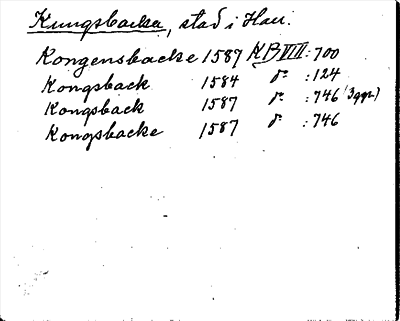 Kungsbacka, stad i Hall.
Kongensbacke 1587 KB VIII: 700
Kongsback 1584 d:o : 124
Kongsback 1587 d:o : 746 (3 ggr)
Kongsbacke 1587 d:o : 746